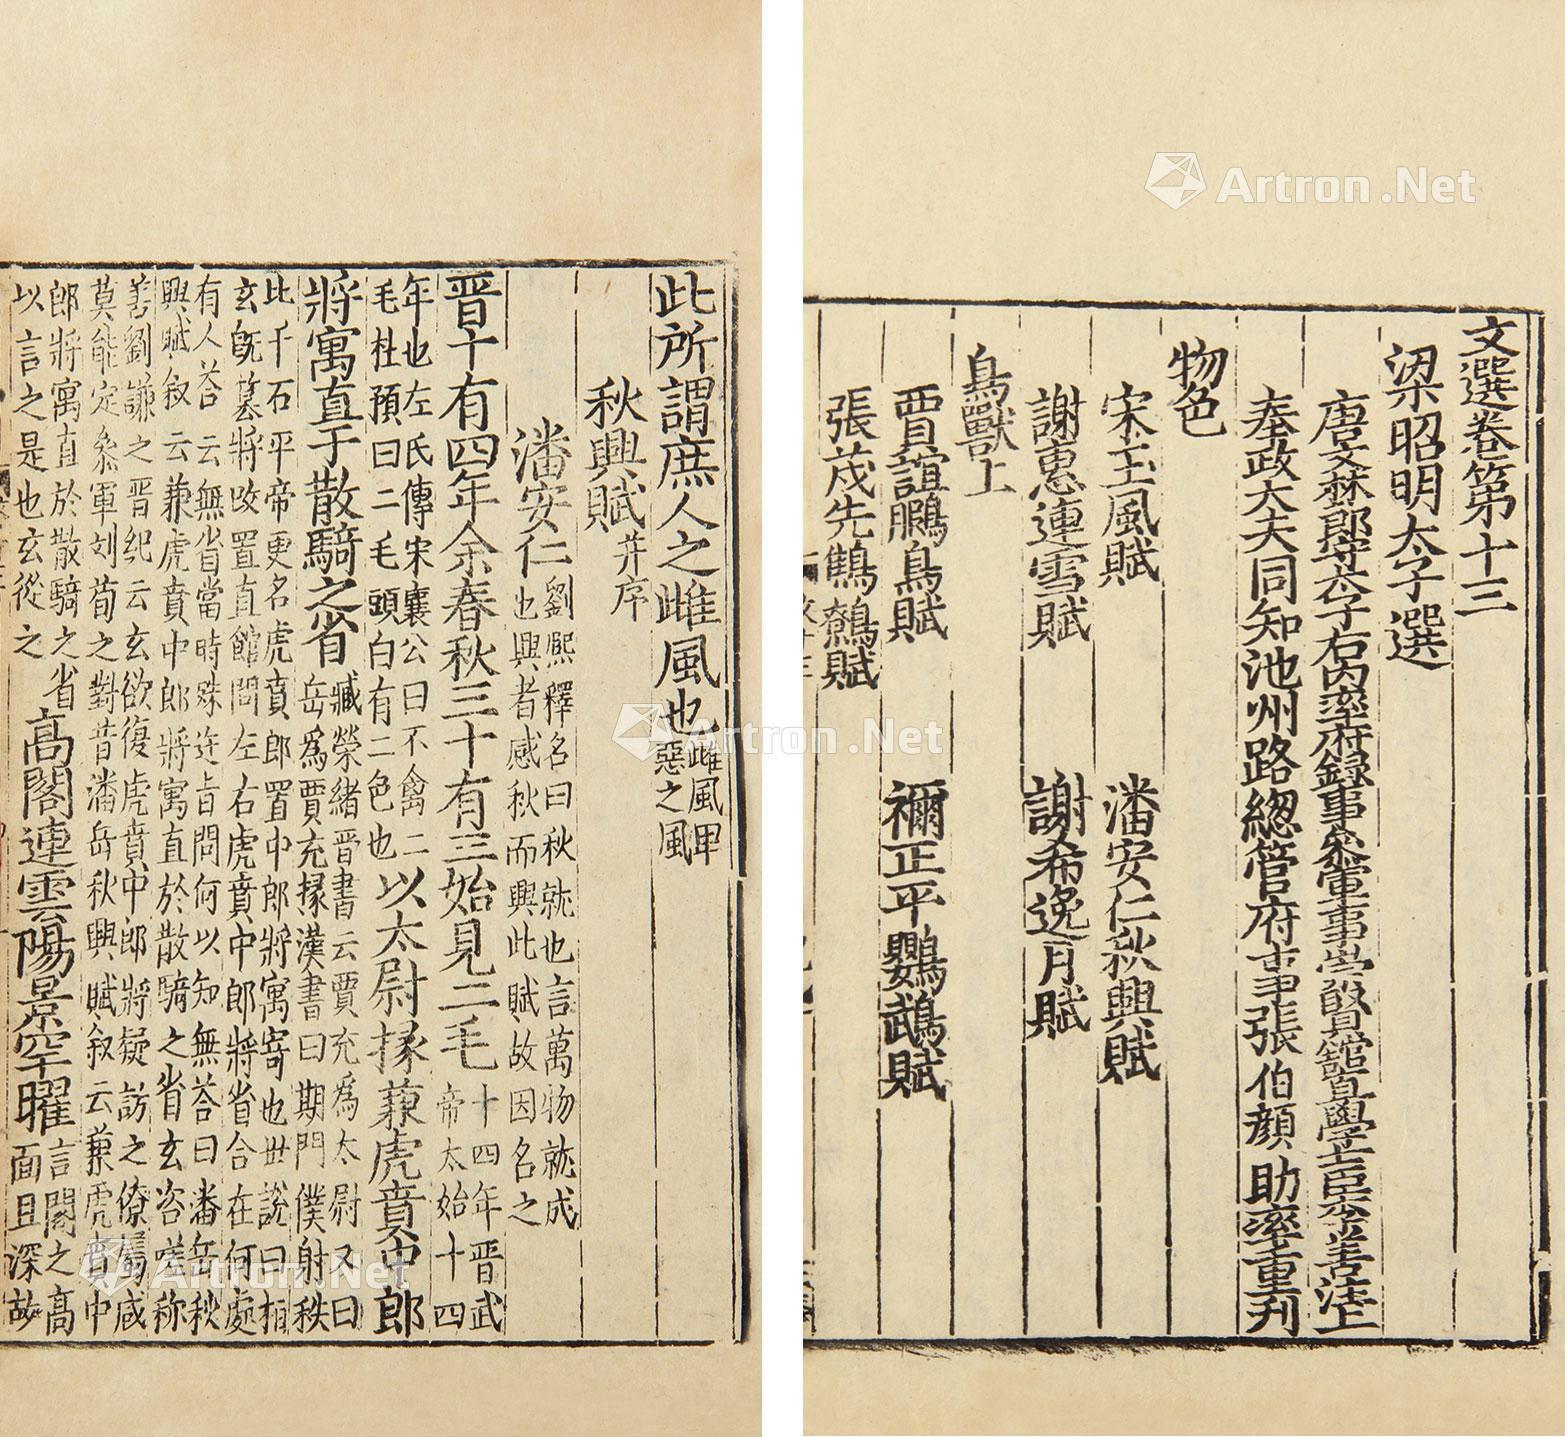 文選卷第十三
梁昭明太子選
唐文林郎守太子右內率府錄事參軍事崇賢館直學士臣李善注上
奉政大夫同知池州路總管府事張伯顏助率重刊
物色
宋玉風賦
潘安仁秋興賦
謝惠連雪賦
謝希逸月賦
鳥獸上
賈誼鵩鳥賦
禰正平鸚鵡賦
張茂先鷦鷯賦
此所謂庶人之雌風也
雌風卑
惡之風
秋興賦
并序
潘安仁
劉熙釋名曰秋就也言萬物就成
也興者感秋而興此賦故因名之
晉十有四年余春秋三十有三始見二毛
十四年晉武
帝太始十四
年也左氏傳宋襄公曰不禽二
毛杜預曰二毛頭白有二色也
以太尉掾兼虎賁中郎
將寓直于散騎之省
臧榮緒晉書云賈充為太尉又曰
岳為賈充掾漢書曰期門僕射秩
此千石平帝更名虎賁郎置中郎將寓寄也世說曰桓
玄旣篡將改置直館問左右虎賁中郎將省合在何處
有人荅云無省當時殊迕旨問何以知無荅曰潘岳秋
興賦敘云兼虎賁中郎將寓直於散騎之省玄咨嗟称
善劉謙之晉紀云玄欲復虎賁中郎將疑訪之僚屬咸
莫能定參軍刘荀之對昔潘岳秋興賦敘云兼虎賁中
郎將寓直於散騎之省
以言之是也玄從之
高閣連雲陽景罕曜
言閣之高
面且深故
Artron.Net
Artron.Net
Artron.Net